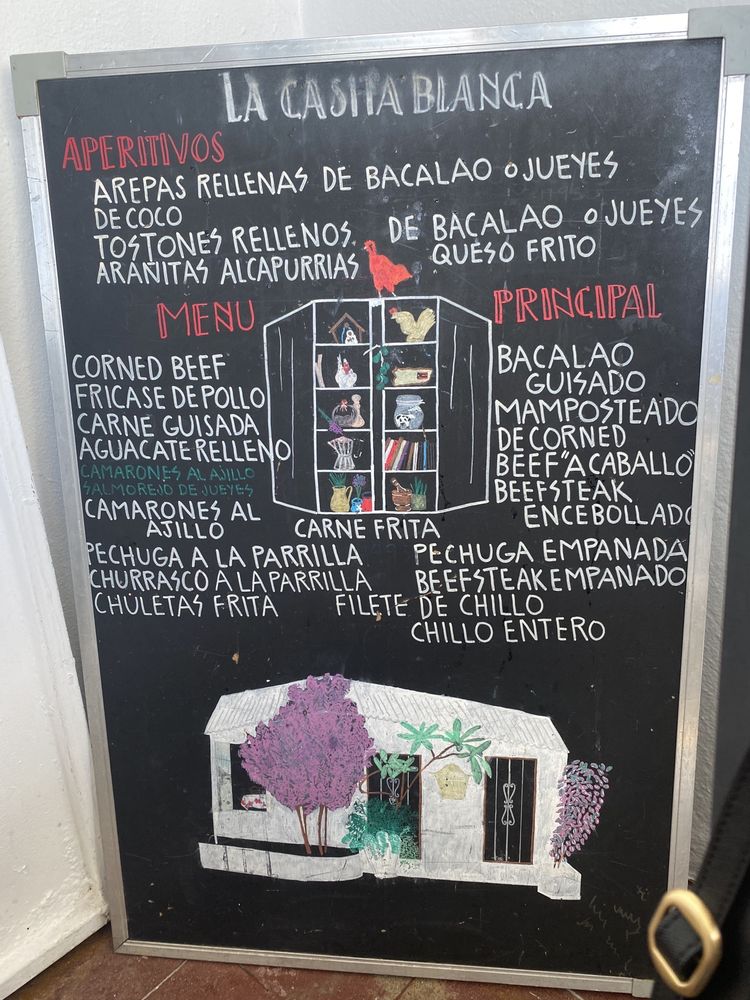 LA CASITA BLANCA
APERITIVOS
AREPAS RELLENAS DE BACALAO o JUEYES
DE COCO
TOSTONES RELLENOS. DE BACALAO o JUEYES
ARAÑITAS ALCAPURRIAS QUESO FRITO
MENU PRINCIPAL
CORNED BEEF
FRICASE DE POLLO
CARNE GUISADA
AGUACATE RELLENO
CAMARONES AL AJILLO
SALMOREJO DE JUEYES
CAMARONES AL
AJILLO
BACALAO
GUISADO
MAMPOSTEADO
DE CORNED
BEEF "A CABALLO"
BEEFSTEAK
ENCEBOLLADO
CARNE FRITA
PECHUGA A LA PARRILLA PECHUGA EMPANADA
CHURRASCO A LA PARRILLA BEEFSTEAK EMPANADO
CHULETAS FRITA FILETE DE CHILLO
CHILLO ENTERO